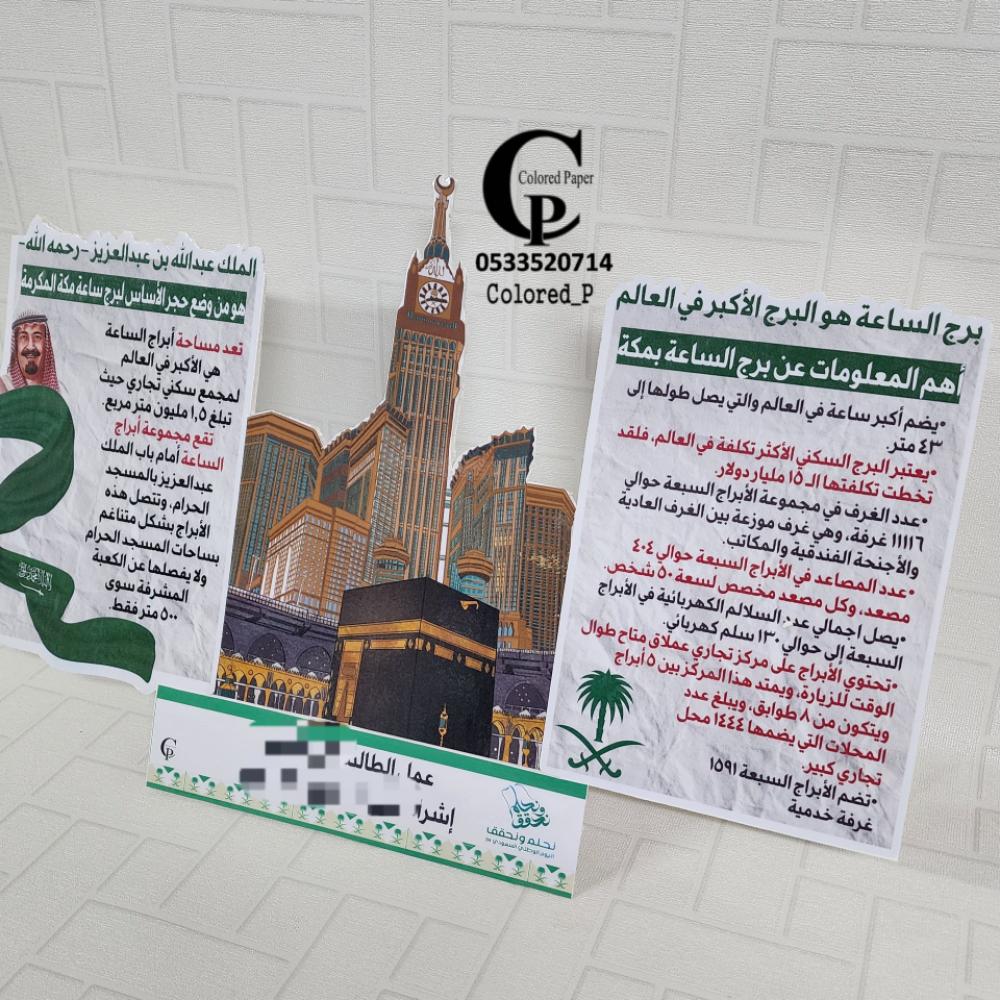 Colored Paper
CP
0533520714
Colored_P
برج الساعة هو البرج الأكبر في العالم
أهم المعلومات عن برج الساعة بمكة
•يضم أكبر ساعة في العالم والتي يصل طولها إلى
٤٣ متر.
•يعتبر البرج السكني الأكثر تكلفة في العالم، فلقد
تخطت تكلفتها الـ ١٥ مليار دولار.
•عدد الغرف في مجموعة الأبراج السبعة حوالي
١١١١٦ غرفة، وهي غرف موزعة بين الغرف العادية
والأجنحة الفندقية والمكاتب.
•عدد المصاعد في الأبراج السبعة حوالي ٤٠٤
مصعد، وكل مصعد مخصص لسعة ٥٠ شخص.
•يصل اجمالي عدد السلالم الكهربائية في الأبراج
السبعة إلى حوالي ١٣٠ سلم كهربائي.
•تحتوي الأبراج على مركز تجاري عملاق متاح طوال
الوقت للزيارة، ويمتد هذا المركز بين ٥ أبراج
ويتكون من ٨ طوابق، ويبلغ عدد
المحلات التي يضمها ١٤٤٤ محل
تجاري كبير.
•تضم الأبراج السبعة ١٥٩١
غرفة خدمية
الملك عبدالله بن عبدالعزيز -رحمه الله-
هو من وضع حجر الأساس لبرج ساعة مكة المكرمة
تعد مساحة أبراج الساعة
هي الأكبر في العالم
لمجمع سكني تجاري حيث
تبلغ ١,٥ مليون متر مربع.
تقع مجموعة أبراج
الساعة أمام باب الملك
عبدالعزيز بالمسجد
الحرام، وتتصل هذه
الأبراج بشكل متناغم
بساحات المسجد الحرام
ولا يفصلها عن الكعبة
المشرفة سوى
٥٠٠ متر فقط.
الله
عمل الطالب
نحلم ونحقق
نحلم ونحقق
اليوم الوطني السعودي
CP